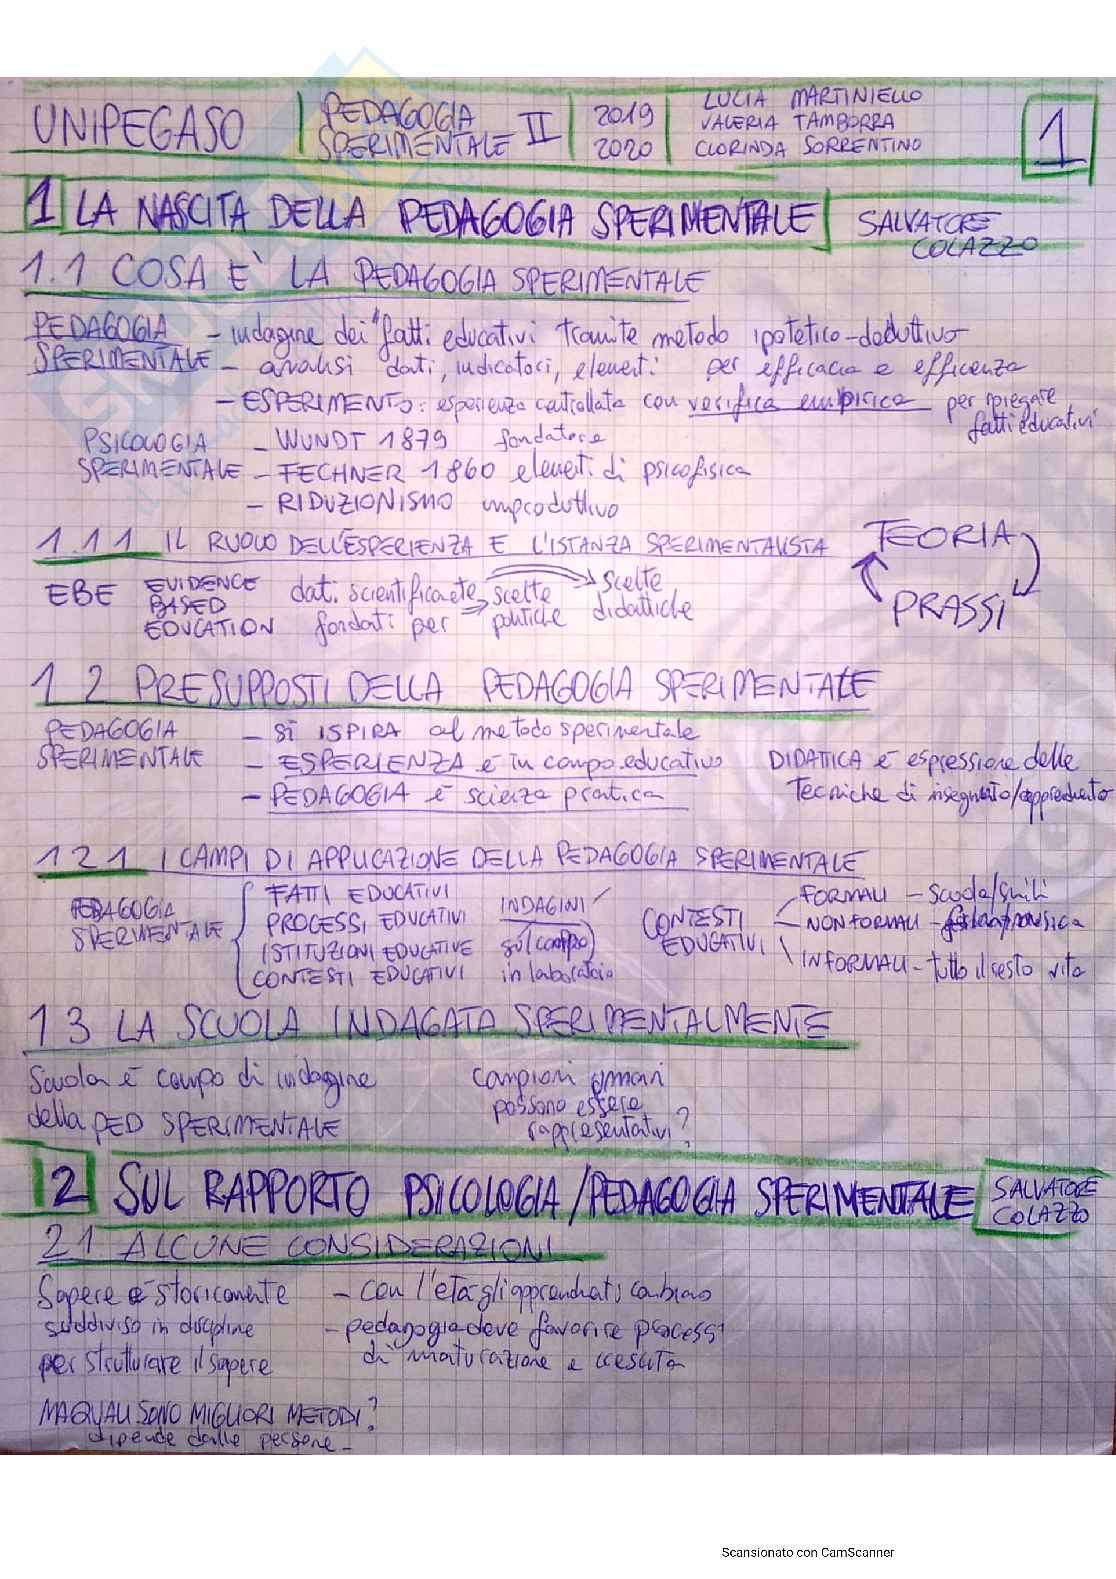 UNIPEGASO | PEDAGOGIA SPERIMENTALE II | 2019 2020 | LUCIA MARTINIELLO
VALERIA TAMBORRA
CLORINDA SORRENTINO
1
1 LA NASCITA DELLA PEDAGOGIA SPERIMENTALE SALVATORE COLAZZO
1.1 COSA E' LA PEDAGOGIA SPERIMENTALE
PEDAGOGIA SPERIMENTALE
- indagine dei fatti educativi tramite metodo ipotetico-deduttivo
- analisi dati, indicatori, elementi per efficacia e efficenza
- ESPERIMENTO: esperienza controllata con verifica empirica per spiegare fatti educativi
PSICOLOGIA SPERIMENTALE
- WUNDT 1879 fondatore
- FECHNER 1860 elementi di psicofisica
- RIDUZIONISMO improduttivo
1.1.1 IL RUOLO DELL'ESPERIENZA E L'ISTANZA SPERIMENTALISTA
TEORIA
PRASSI
EBE EVIDENCE BASED EDUCATION
dati scientificamente fondati per scelte politiche
scelte didattiche
1 2 PRESUPPOSTI DELLA PEDAGOGIA SPERIMENTALE
PEDAGOGIA SPERIMENTALE
- SI ISPIRA al metodo sperimentale
- ESPERIENZA è in campo educativo
- PEDAGOGIA è scienza pratica
DIDATTICA è espressione delle
tecniche di
1 2 1 I CAMPI DI APPLICAZIONE DELLA PEDAGOGIA SPERIMENTALE
PEDAGOGIA SPERIMENTALE
FATTI EDUCATIVI
PROCESSI EDUCATIVI
ISTITUZIONI EDUCATIVE
CONTESTI EDUCATIVI
INDAGINI
sul campo
in laboratorio
CONTESTI EDUCATIVI
FORMALI - scuola/simili
NON FORMALI -
INFORMALI - tutto il resto vita
1 3 LA SCUOLA INDAGATA SPERIMENTALMENTE
Scuola è campo di indagine
della PED SPERIMENTALE
campioni umani
possono essere
rappresentativi?
2 SUL RAPPORTO PSICOLOGIA/PEDAGOGIA SPERIMENTALE SALVATORE COLAZZO
2 1 ALCUNE CONSIDERAZIONI
Sapere è storicamente
suddiviso in discipline
per strutturare il sapere
- con l'età gli apprendimenti cambiano
- pedagogia deve favorire processi
di maturazione e crescita
MA QUALI SONO MIGLIORI METODI?
dipende dalle persone -
Scansionato con CamScanner